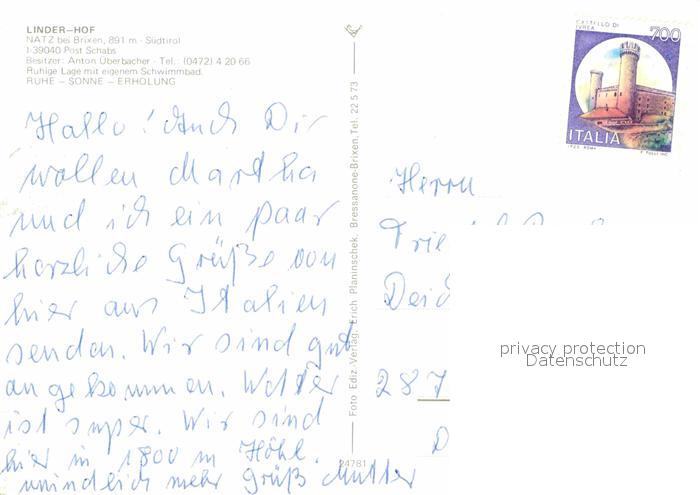 LINDER–HOF
NATZ bei Brixen, 891 m - Südtirol
I-39040 Post Schabs
Besitzer: Anton Überbacher - Tel.: (0472) 4 20 66
Ruhige Lage mit eigenem Schwimmbad.
RUHE – SONNE – ERHOLUNG
Hallo! Auch Dir
wollen Martha
und ich ein paar
herzliche Grüße von
hier aus Italien
senden. Wir sind gut
angekommen. Wetter
ist super. Wir sind
hier in 1800 m Höhe.
mündlich mehr Gruß Mutter
Foto Ediz. Verlag: Erich Planinschek, Bressanone-Brixen, Tel. 22 5 73
24781
CASTELLO DI
IVREA
700
ITALIA
Herrn
Frie
Deic
287
D
privacy protection
Datenschutz